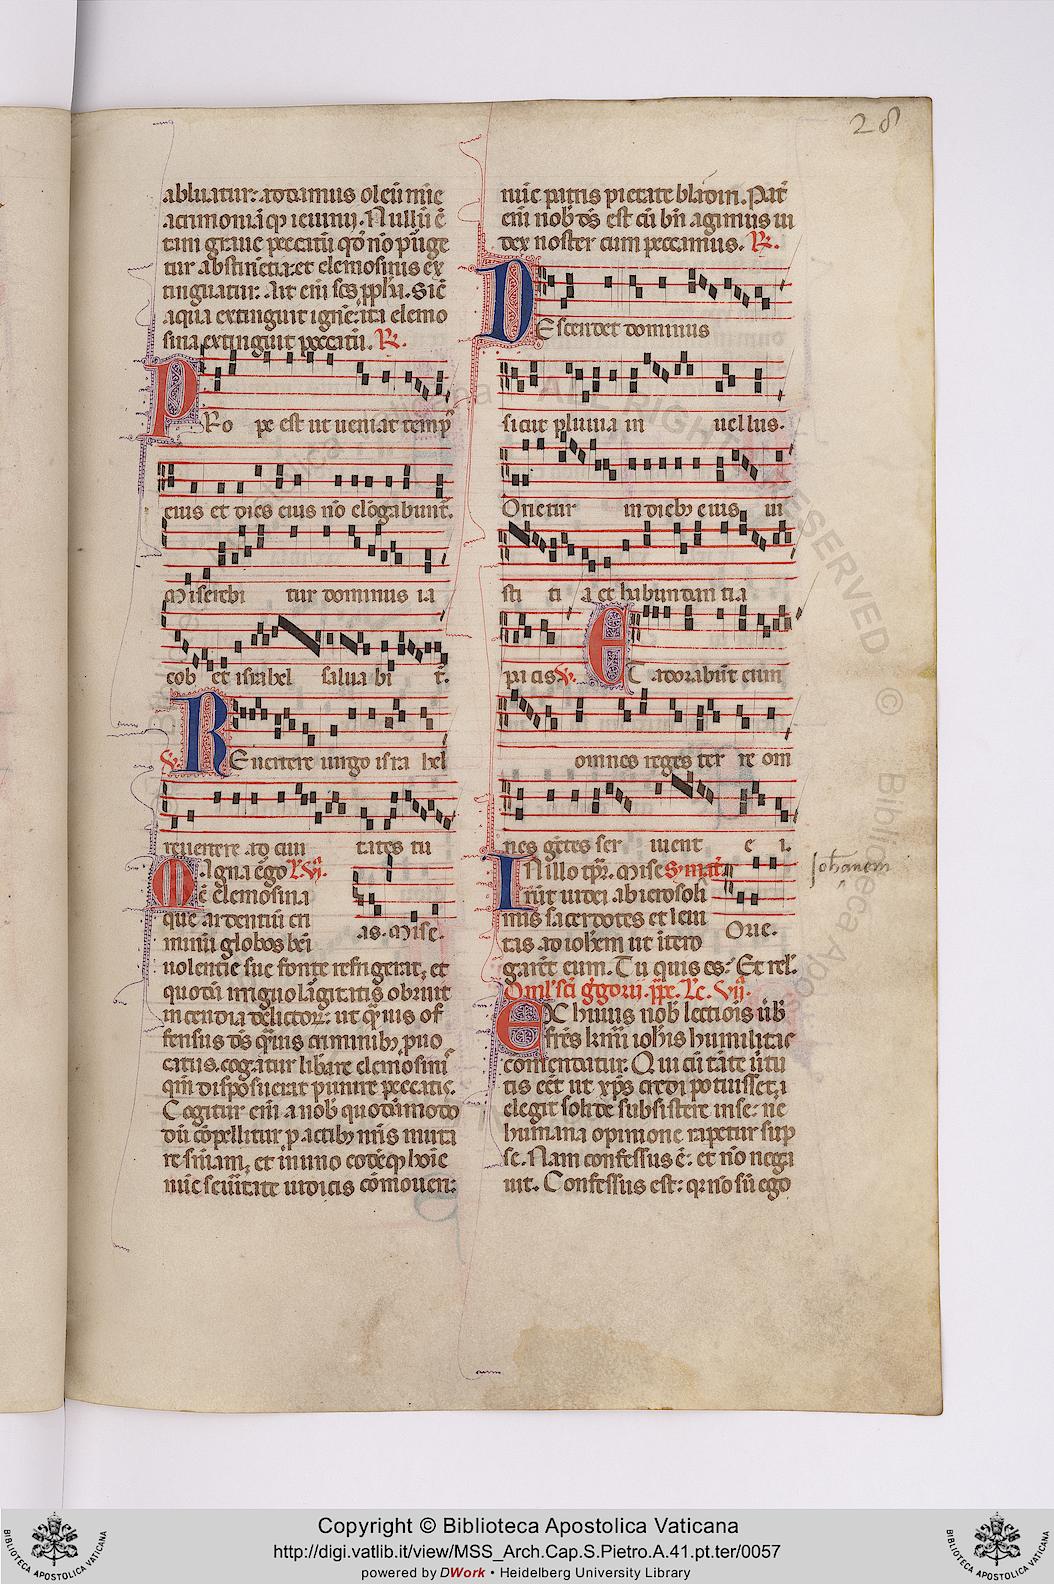 28
abluatur: addamus oleū mīe
acrimoniā q̄ ieiunij. Nullū ē
tam graue peccatū qd̄ nō p̄urge
tur abstinētia: et elemosinis ex
tinguatur. Ait eni scs pph̄a. Sic̄
aqua extinguit ignē: ita elemo
sina extinguit peccatū. R.
PRo pe est ut ueniat temp
eius et dies eius nō elōgabunt.
Miserebi tur dominus ia
cob et israhel salua bi t.
V. REuertere uirgo isra hel
reuertere ad ciui tates tu
as. Mise.
Magna ergo L. VI.
ē elemosina
que ardentiū cri
minū globos beni
uolentie sue fonte refrigerat, et
quodā irriguo lāgitatis obruit
incendia delictorum: ut q̄uis of
fensus ds̄ q̄uis criminib; puo
catus. cogatur libare elemosinis
quos disposuerat punire peccatis.
Cogitur eni a nob̄ quodāmodo
dū cōpellitur p actib; nr̄is muta
re sniam, et in uno eodēq; hoīe
nūc seueritate iudicis cōmouen:
nūc patris pietate blādiri. Pat̄
eni nob̄ ds̄ est cū bn̄ agimus iu
dex noster cum peccamus. R.
DEscendet dominus
sicut pluuia in uellus.
Orietur in dieb; eius iu
sti ti a et habundan ti a
pacis V. ET adorabūt eum
omnes reges ter re om
nes gētes ser uient e i.
IN illo tp̄r. Mise Sm mat.
runt iudei ab ierosoli
mis sacerdotes et leui
tas ad ioh̄em ut itero
garēt eum. Tu quis es: Et rel.
Oriē.
Johānem
Oml̄ sci g̓gorii. pp. Lc. VII.
EX huius nob̄ lectiōis ūb̄
fr̄es kmi ioh̄is humilitas
comendatur. Qui cū tāte ūtu
tis eēt ut xp̄s credi potuisset,
elegit solide subsistere in se: ne
humana opinione rapetur sup
se. Nam confessus ē: et nō nega
uit. Confessus est: q̄ nō sū ego
Copyright © Biblioteca Apostolica Vaticana
http://digi.vatlib.it/view/MSS_Arch.Cap.S.Pietro.A.41.pt.ter/0057
powered by DWork • Heidelberg University Library
BIBLIOTECA APOSTOLICA VATICANA
BIBLIOTECA APOSTOLICA VATICANA